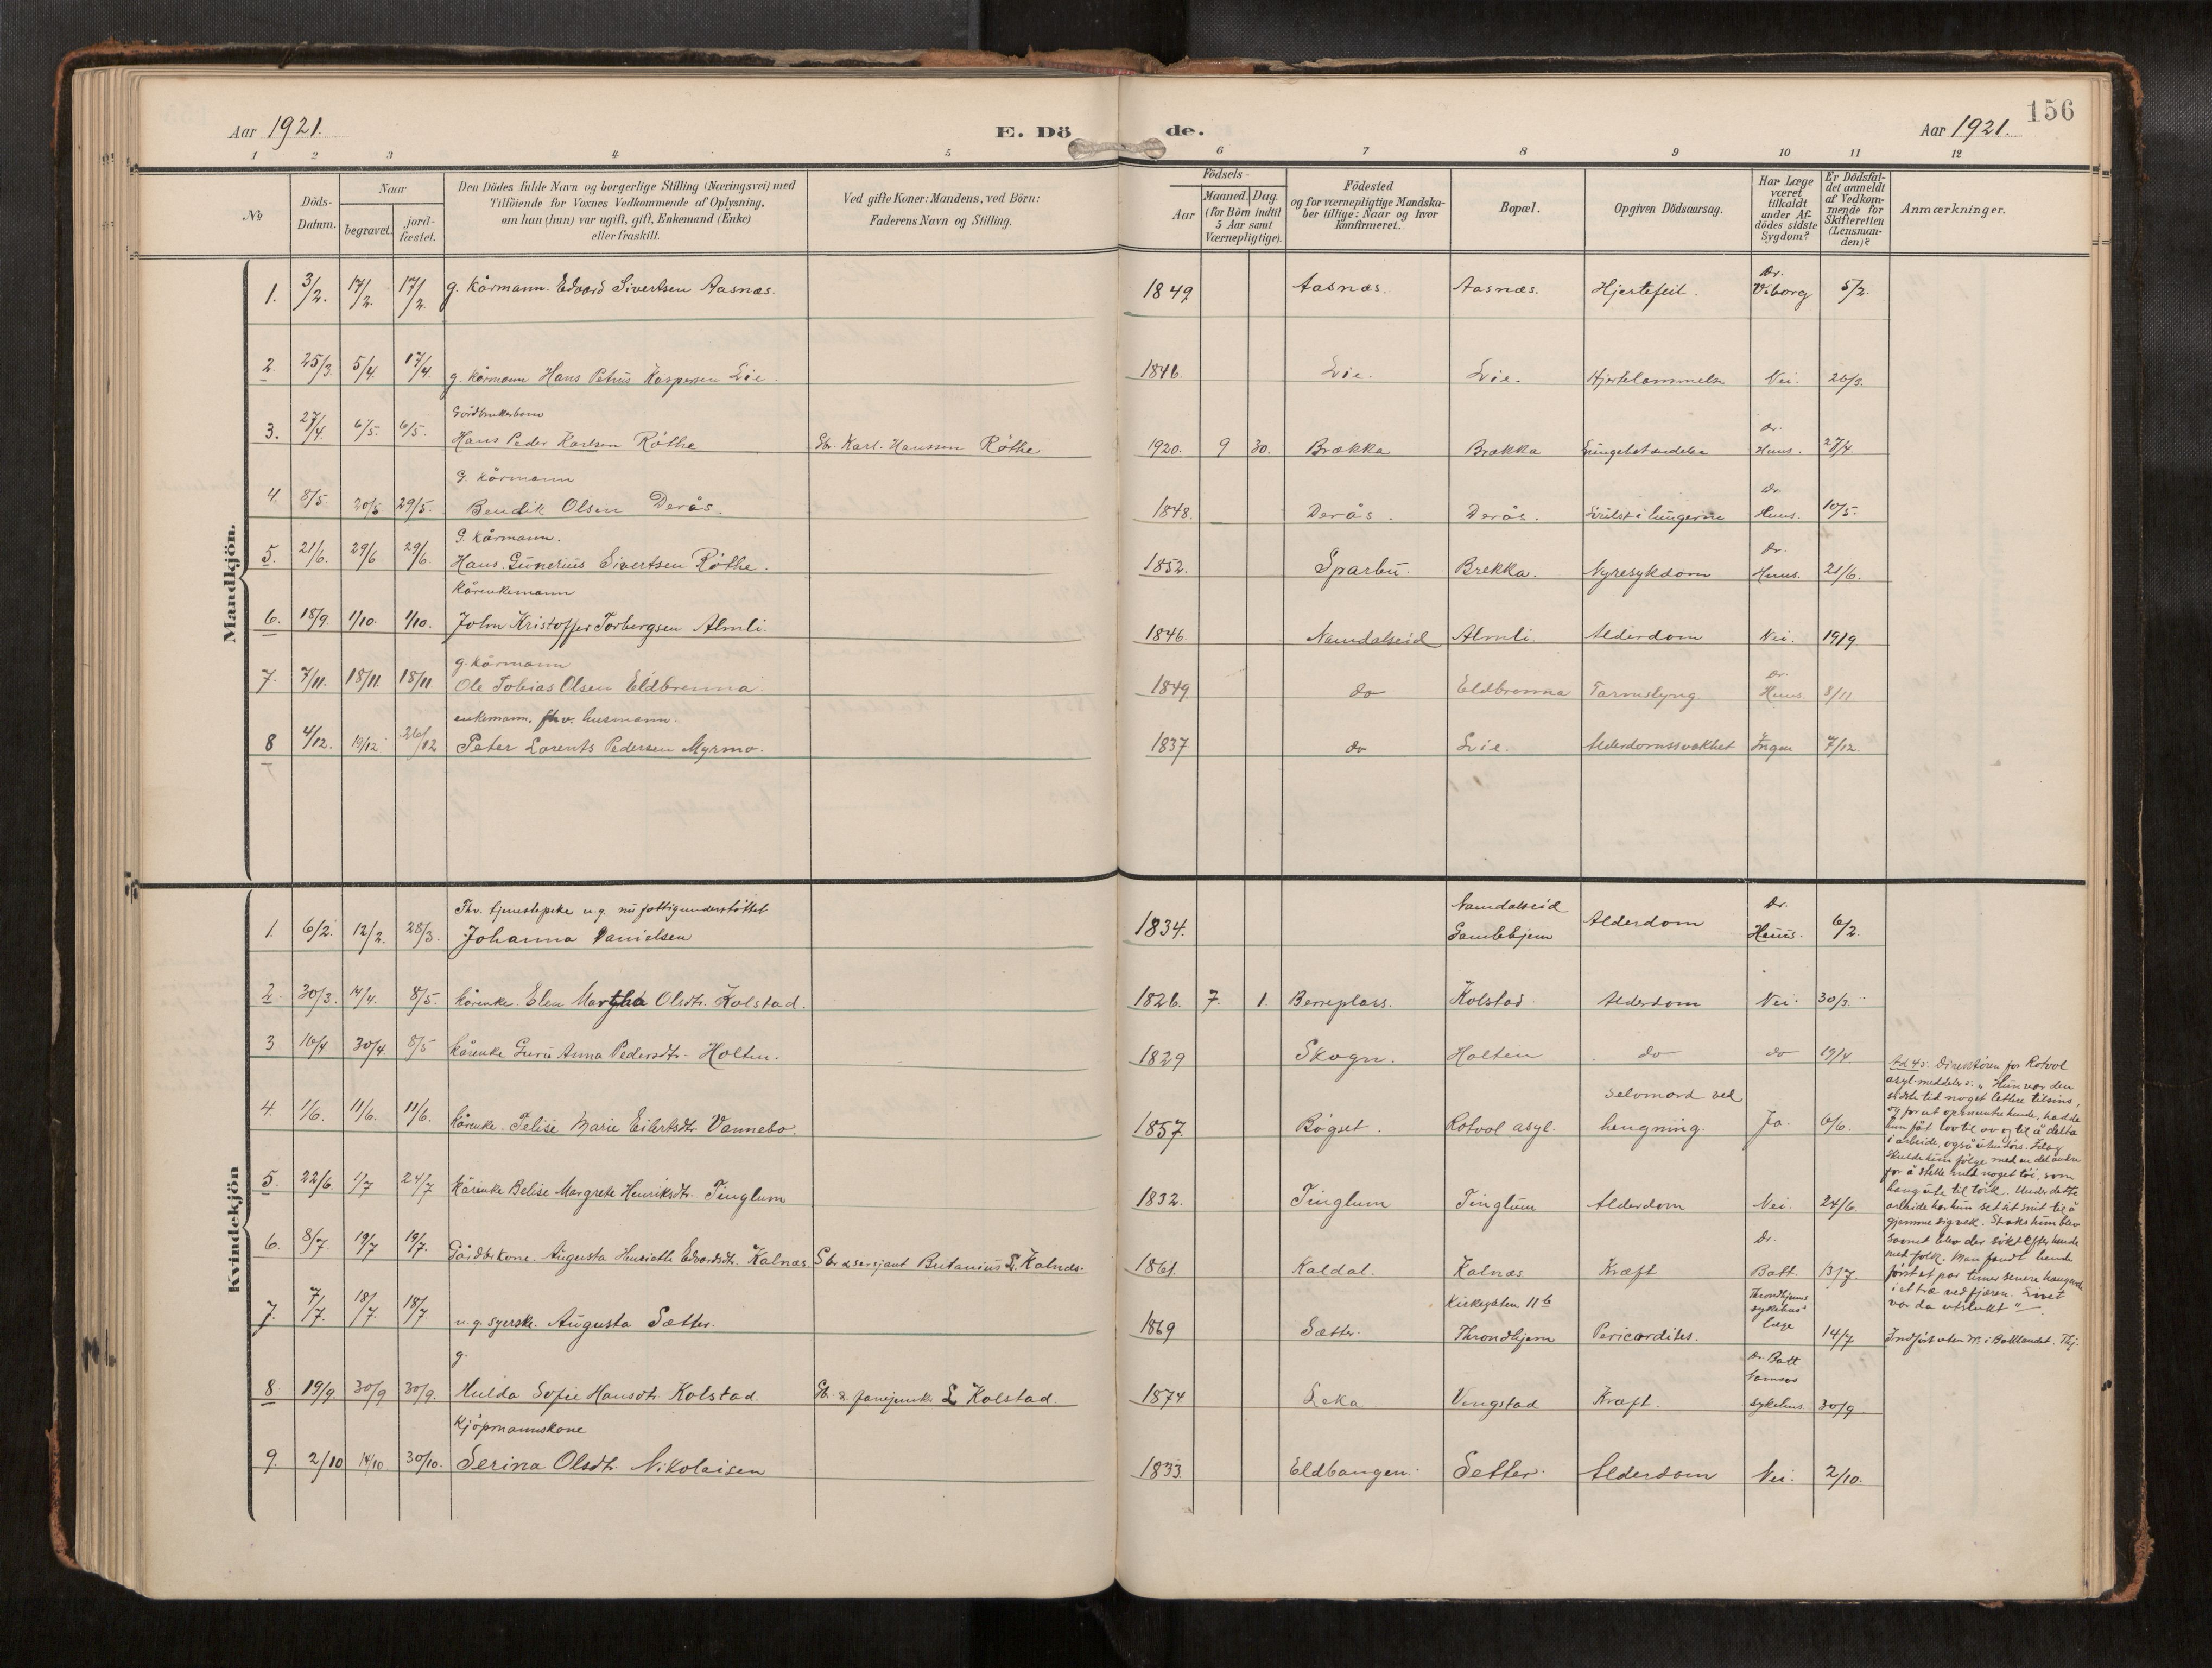 156
Aar 1921. E. Dö de. Aar 1921.
1 2 3 4 5 6 7 8 9 10 11 12
No
Döds-Datum.
Naar
begravet.
jord-fæstet.
Den Dödes fulde Navn og borgerlige Stilling (Næringsvei) med
Tilföiende for Voxnes Vedkommende af Oplysning,
om han (hun) var ugift, gift, Enkemand (Enke)
eller fraskilt.
Ved gifte Koner: Mandens, ved Börn:
Faderens Navn og Stilling.
Födsels-
Aar
Maaned. Dag.
(for Börn indtil
5 Aar samt
Værnepligtige).
Födested
og for værnepligtige Mandska-
ber tillige: Naar og hvor
konfirmeret.
Bopæl.
Opgiven Dödsaarsag.
Har Læge
været
tilkaldt
under Af-
dödes sidste
Sygdom?
Er Dödsfal-
det anmeldt
af Vedkom-
mende for
Skifteretten
(Lensman-
den)?
Anmærkninger.
Mandkjön.
1. 3/2. 17/2. 17/2. g. kårmann. Edvard Sivertsen Aasnæs. 1849 Aasnæs. Aasnæs. Hjertefeil. Dr. Viborg 5/2.
2. 25/3. 5/4. 17/4. g. kårmann Hans Petrus Kaspersen Lie. 1846. Lie. Lie. Hjertelammelse Nei. 26/3.
3. 27/4. 6/5. 6/5. Gårdbrukerbarn
Hans Peder Karlsen Røthe Gbr. Karl Hanssen Røthe 1920. 9 30. Brækka Brækka Lungebetændelse Dr. Huus. 27/4.
4. 8/5 20/5 29/5. G. kårmann
Bendik Olsen Derås. 1848. Derås. Derås. lungerne Dr. Huus. 10/5.
5. 21/6. 29/6 29/6. G. kårmann.
Hans Gunerius Sivertsen Røthe. 1852. Sparbu. Brekka. Nyresykdom Dr. Huus. 21/6.
6. 18/9. 1/10. 1/10. Kårenkemann
John Kristoffer Torbergsen Almli. 1846. Namdalseid Almli. Alderdom Nei. 19/9.
7. 7/11. 18/11. 18/11 g. kårmann
Ole Tobias Olsen Eldbrenna 1849. do Eldbrenna Tarmslyng. Dr. Huus. 8/11
8 4/12. 19/12 26/12 enkemann, fhv. husmann.
Peter Lorents Pedersen Myrmo. 1837 do Lie. Alderdomssvakhet Ingen 7/12.
Kvindekjön
1. 6/2. 12/2. 28/3. Fhv. tjenestepike u.g. nu fattigunderstøttet
Johanna Danielsen 1834. Namdalseid Gamlehjem Alderdom Dr. Huus. 6/2.
2. 30/3. 14/4. 8/5. kårenke. Elen Martha Olsdtr. Kolstad. 1826. 7. 1. Berreplass. Kolstad Alderdom Nei. 30/3.
3 16/4 30/4. 8/5 kårenke Guru Anna Pedersdtr. Holten. 1829 Skogn. Holten do do 19/4.
4. 1/6. 11/6. 11/6. kårenke. Felise Marie Eilertsdtr. Vannebo. 1857. Bøgset. Rotvol asyl. Selvmord ved hengning. Ja. 6/6.
5. 22/6. 1/7 24/7 kårenke Belise Margrete Henriksdtr. Tinglum 1832. Tinglum Tinglum Alderdom Nei. 24/6.
6. 8/7. 19/7 19/7. Gårdbr.kone. Augusta Henriette Edvardsdtr. Kalnæs. Gbr & sersjant Butanius L. Kalnæs. 1861. Kaldal. Kalnæs. Kræft Dr. Batt. 13/7.
7. 7/7. 18/7. 18/7 u.g. syerske. Augusta Sætter. 1869 Sætter. Kirkegaten 11b Throndhjem Pericarditis. Throndhjems sykehus' læge 14/7
8. 19/9 30/9 30/9. g.
Hulda Sofie Hansdtr. Kolstad. Gb. & fanejunk. L Kolstad. 1874. Leka Vengstad Kræft. Dr. Batt Namsos sykehus 30/9.
9. 2/10 14/10 30/10. Kjöpmannskone
Serina Olsdtr. Nikolaisen 1833. Eldbangen. Setter. Alderdom Nei. 2/10.
Ad 4: Direktøren for Rotvol
asyl meddeler: "Hun var den
sidste tid noget lettere tilsins,
og for at opmuntre hende, hadde
hun fåt lov til av og til å delta
i arbeide, også utendørs. Idag
skulde hun følge med en del andre
for å stelle med noget töi, som
hang ute til törk. Under dette
arbeide har hun set sit snit til å
gjemme sig vek. Straks hun blev
savnet blev der søkt efter hende
med folk. Man fandt hende
først et par timer senere hængende
i et træ ved fjæren. Livet
var da utslukt"
Indført uten Nr. i Baklandet. Thj.